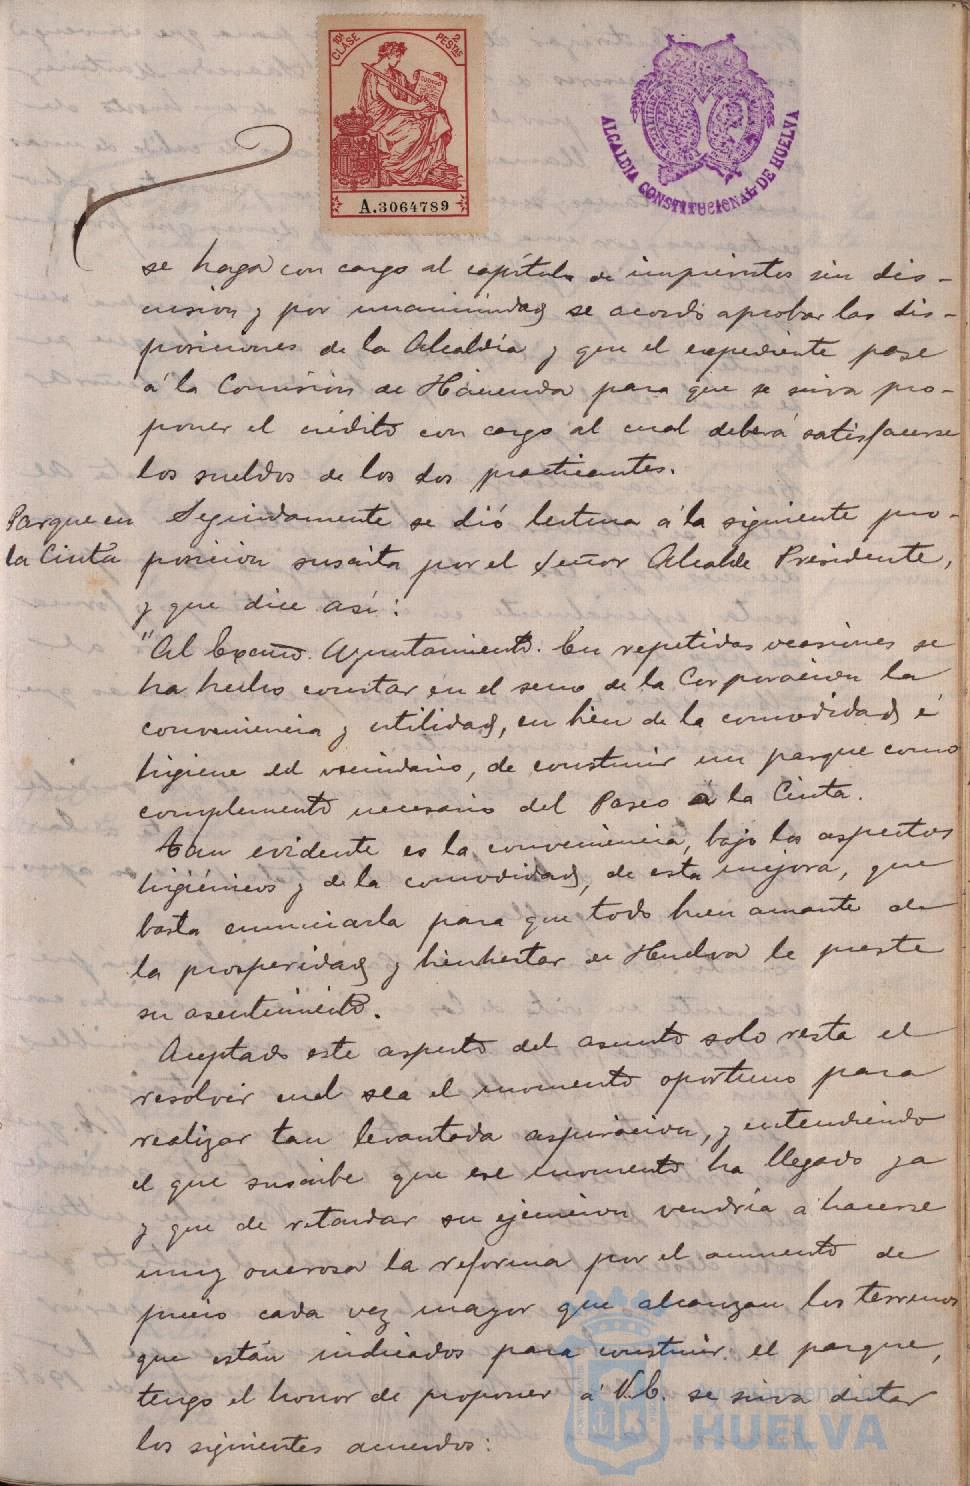 10ª CLASE 2 PESTAS
A.3064789
ALCALDIA CONSTITUCIONAL DE HUELVA
se haga con cargo al capítulo de imprevistos sin dis-
cusión y por unanimidad se acordó aprobar las dis-
posiciones de la Alcaldía y que el expediente pase
á la Comisión de Hacienda para que se sirva pro-
poner el crédito con cargo al cual deberá satisfacerse
los sueldos de los dos practicantes.
Parque en
la Cinta
Seguidamente se dió lectura á la siguiente pro-
posición suscrita por el Señor Alcalde Presidente,
y que dice así:
"Al Excmo. Ayuntamiento. En repetidas ocasiones se
ha hecho constar en el seno de la Corporación la
conveniencia y utilidad, en bien de la comodidad é
higiene del vecindario, de construir un parque como
complemento necesario del Paseo á la Cinta.
Tan evidente es la conveniencia, bajo los aspectos
higiénicos y de la comodidad, de esta mejora, que
basta enunciarla para que todo buen amante de
la prosperidad y bienhestar de Huelva le preste
su asentimiento.
Aceptado este aspecto del asunto solo resta el
resolver cual sea el momento oportuno para
realizar tan levantada aspiración, y entendiendo
el que suscribe que ese momento ha llegado ya
y que de retardar su ejecución vendría a hacerse
muy onerosa la reforma por el aumento de
precio cada vez mayor que alcanzan los terrenos
que están indicados para construir el parque,
tengo el honor de proponer á V.E. se sirva dictar
los siguientes acuerdos:
Ayuntamiento de
HUELVA